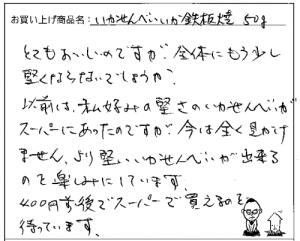 お買い上げ商品名：いかせんべいいか鉄板焼 50g
とてもおいしいのですが、全体にもう少し
堅くならないでしょうか。
以前は、私好みの堅さのいかせんべいが
スーパーにあったのですが、今は全く見かけ
ません、より堅いいかせんべいが出来る
のを楽しみにしています。
400円前後でスーパーで買えるのを
待っています。